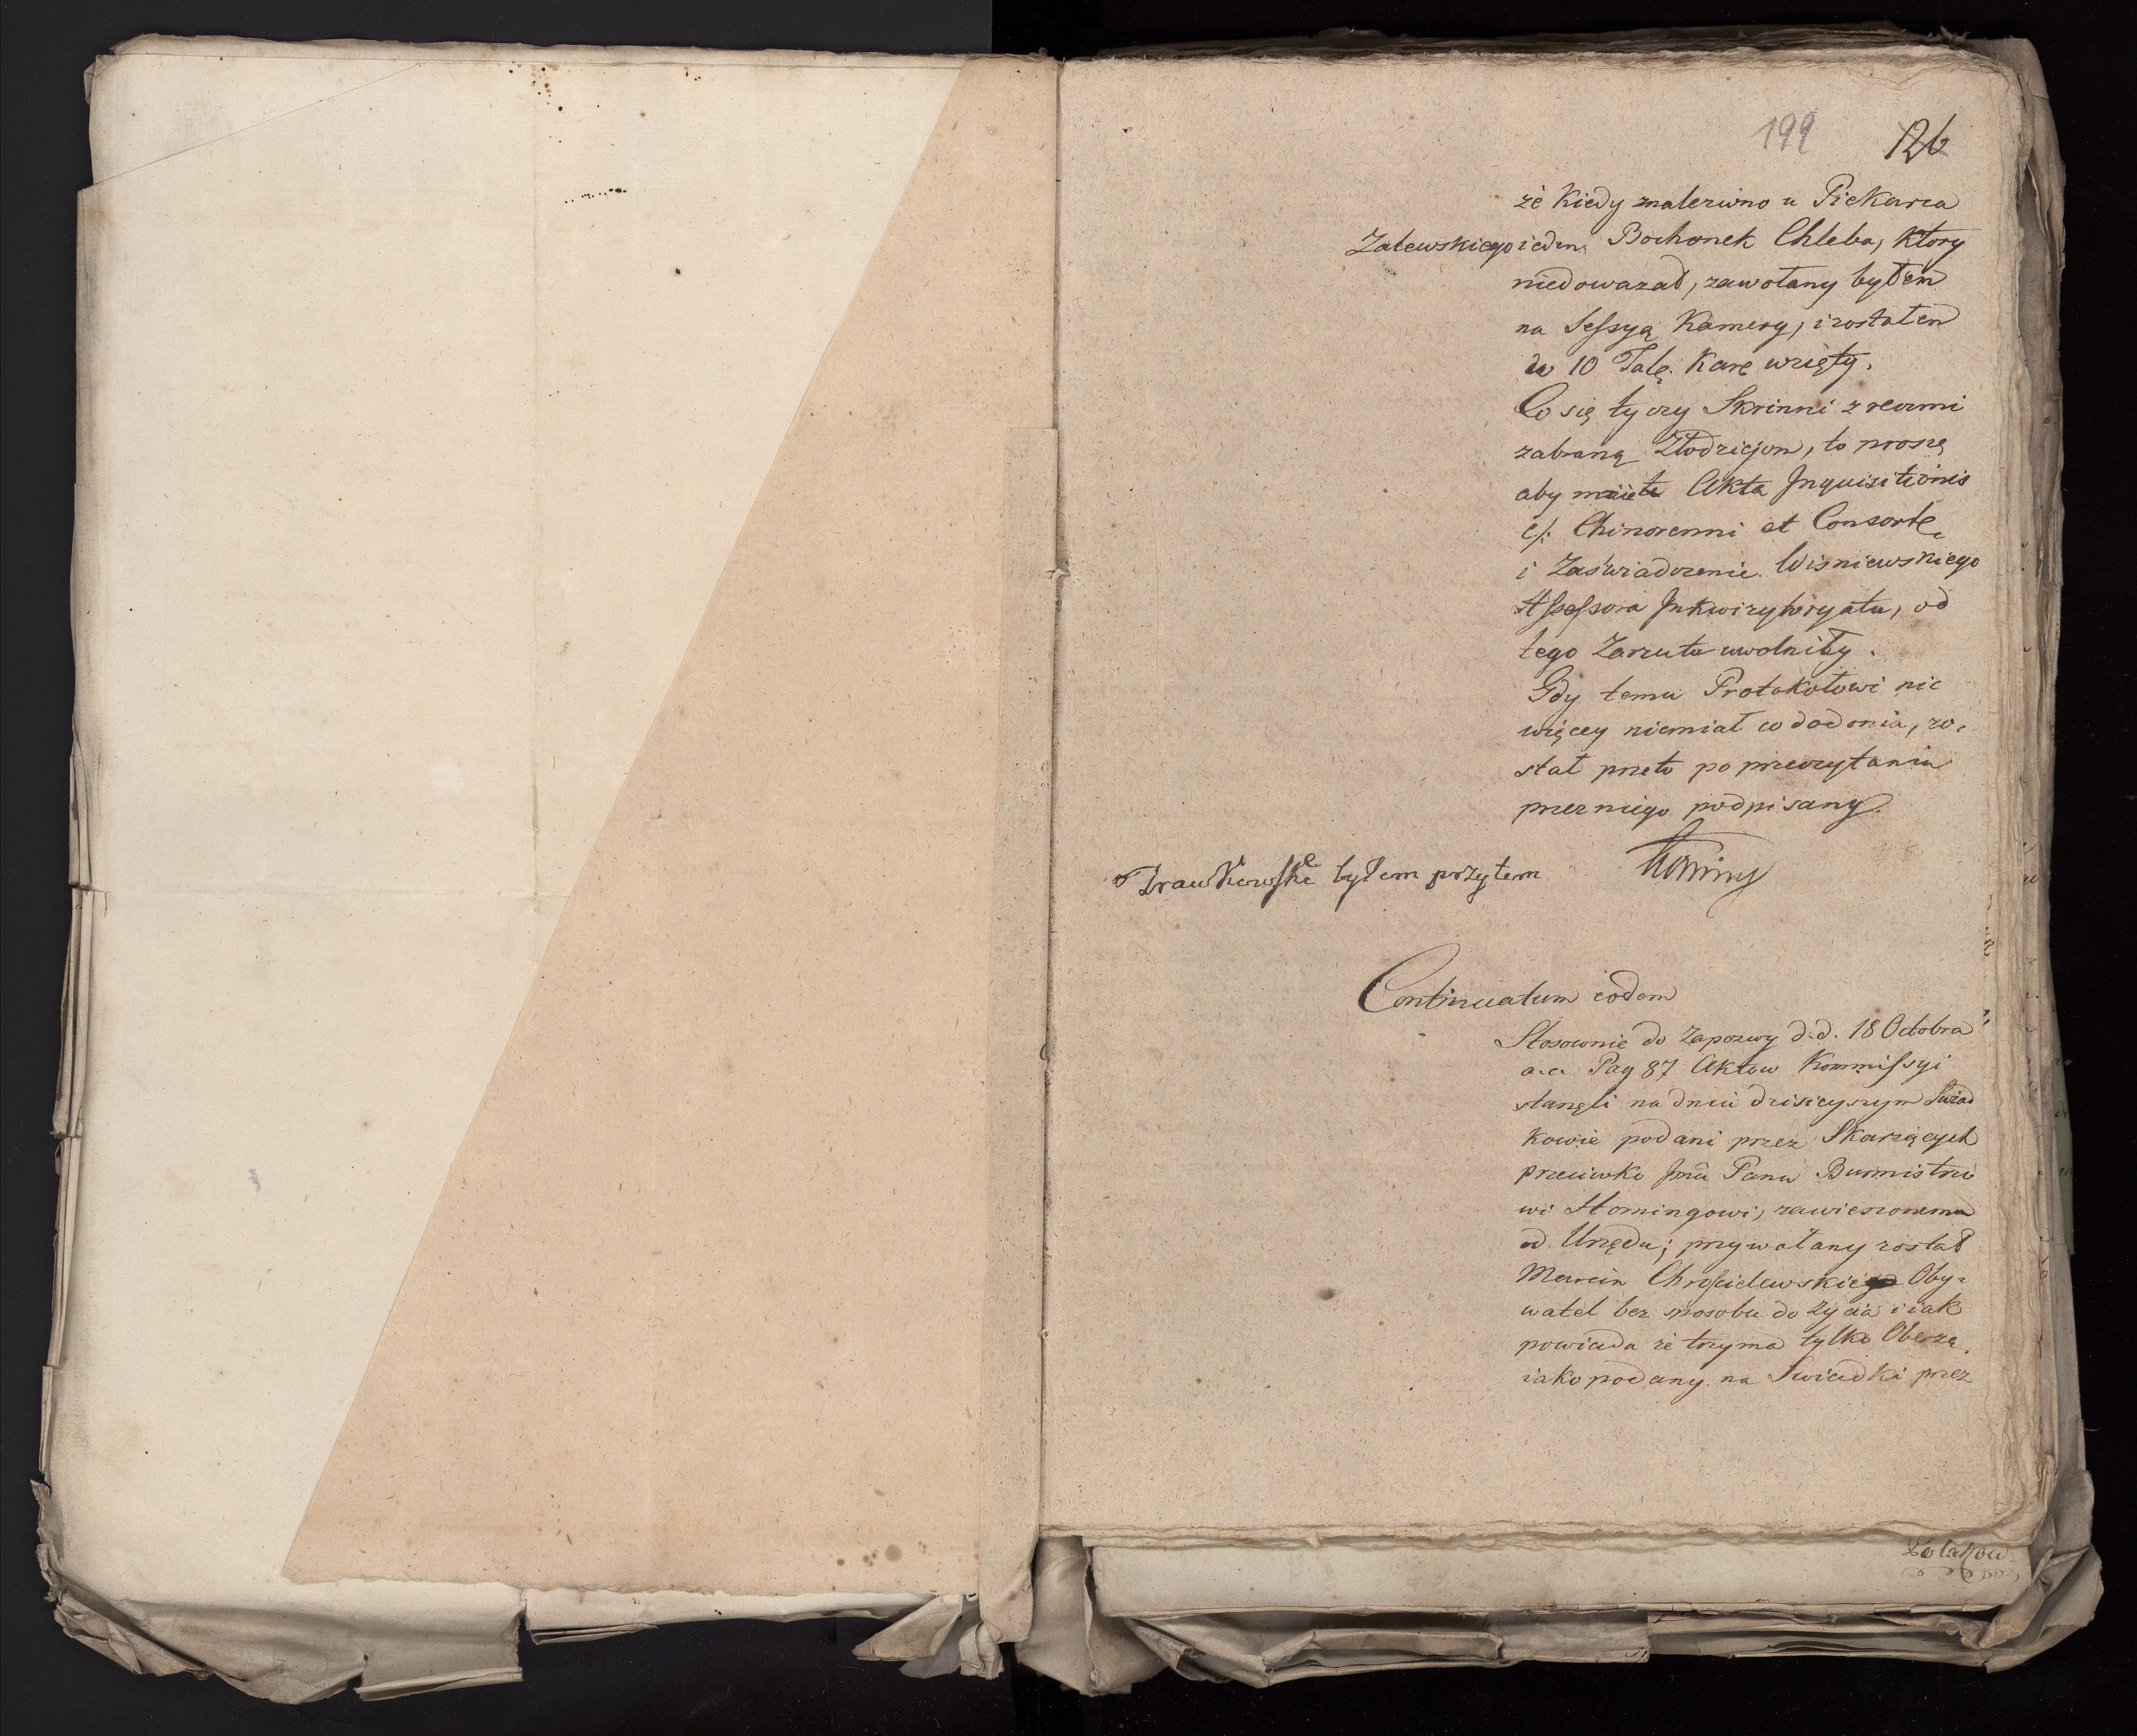 199 126
że kiedy znaleziono u Piekarza
Zalewskiego ieden Bochonek Chleba, ktory
niedowazał, zawołany byłem
na Sessyą Kamery, i zostałem
w 10 Tal. Karę wzięty.
Co się tyczy Skrinni z rzeczmi
zabraną Złodziejom, to proszę
aby mnie te Akta Inquisitionis
c/: Chinorenni et Consorte
i Zaświadczenie Wisniewskiego
Assessora Inkwizytoryatu, od
tego Zarzutu uwolniły.
Gdy temu Protokołowi nic
więcey niemiał co dodonia, zo-
stał przeto po przeczytaniu
przez niego podpisany.
Homing
byłem przytem
Continuatum eodem
Stosownie do Zapozwy d.d. 18 Octobra
a.c. Pag 87 Aktow Kommissyi
stanęli na dniu dzisieyszym Swiad
kowie podani przez Skarzących
przeciwko Jmci Panu Burmistrzo
wi Homingowi, zawieszonemu
od Urzędu; przywołany został
Marcin Chroscielewski Oby-
watel bez sposobu do życia i iak
powiada że trzyma tylko Oberzę,
iako podany na Swiadki przez